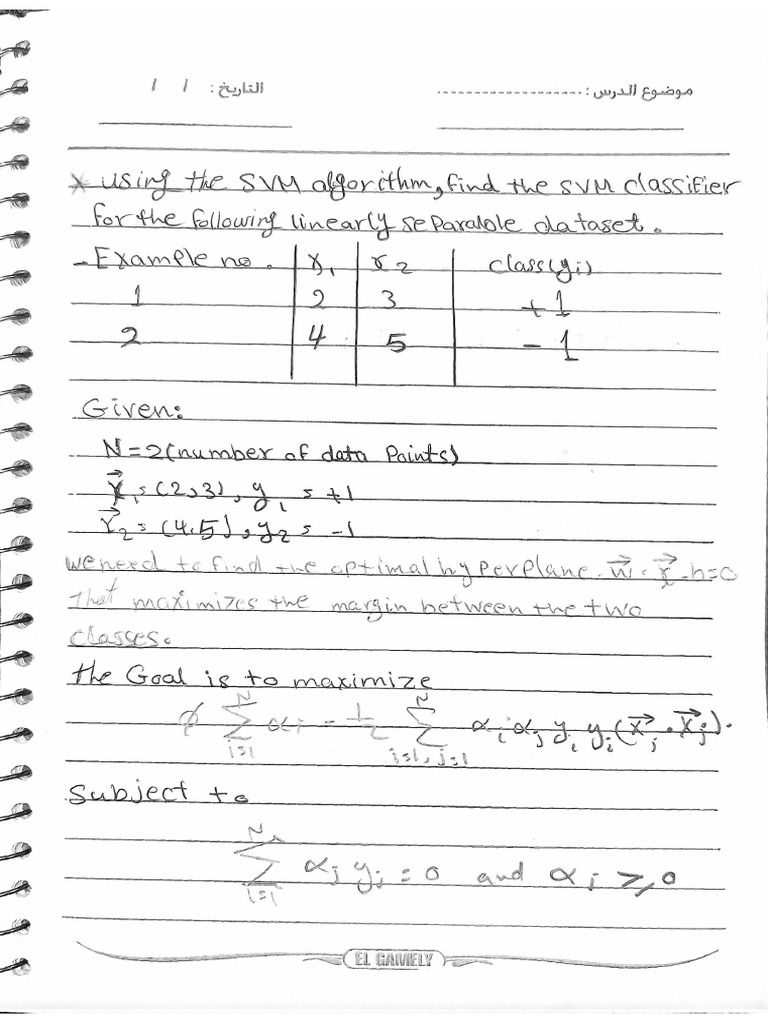 موضوع الدرس : ................... التاريخ : / /
* using the SVM algorithm, find the SVM classifier
for the following linearly separable dataset.
- Example no. x₁ x₂ class(yᵢ)
1 2 3 +1
2 4 5 -1
Given:
N=2(number of data Points)
X⃗₁ = (2,3), y₁ = +1
X⃗₂ = (4,5), y₂ = -1
we need to find the optimal hyperplane. w⃗ . x⃗ - b=0
that maximizes the margin between the two
classes.
the Goal is to maximize
φ ∑ᵢ₌₁ᴺ αᵢ - 1/2 ∑ᵢ₌₁,ⱼ₌₁ᴺ αᵢ αⱼ yᵢ yⱼ (x⃗ᵢ . x⃗ⱼ).
Subject to
∑ᵢ₌₁ᴺ αᵢ yᵢ = 0 and αᵢ ≥ 0
EL GAMELY